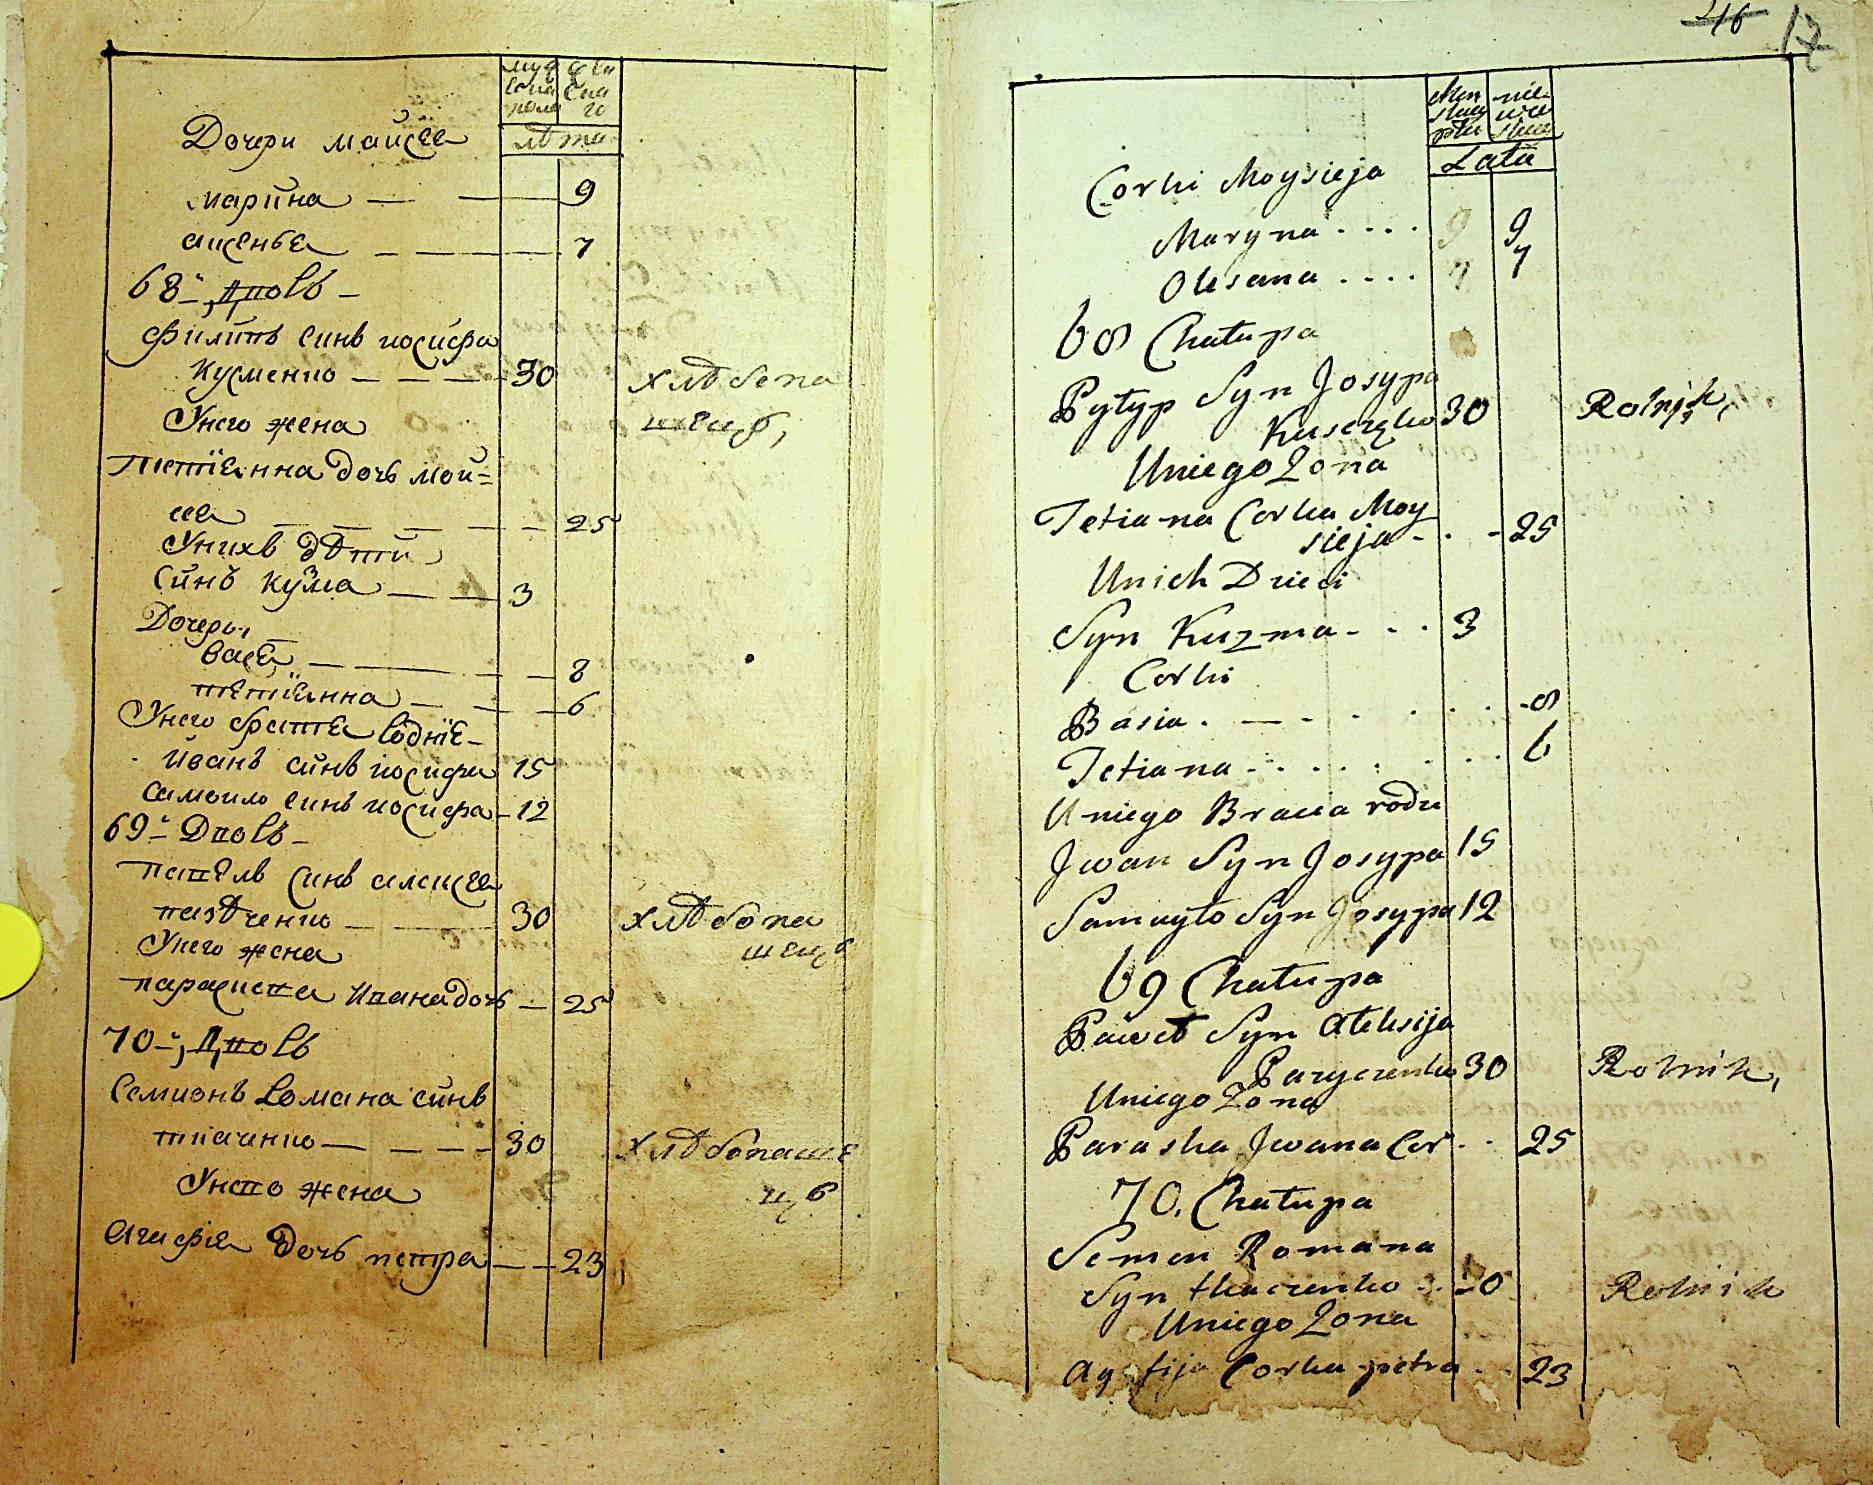 Мужеска пола
женска го
лѣта
Дочери Мойсея
Марина — — 9
Аксенья — — 7
68й, Дворъ —
Филипъ синъ иосифа
Кусменко — — — 30 хлѣбопа
Унего жена шецъ,
Тетіянна дочъ мой=
сея — — — — 25
Унихъ дѣти
Синъ Кузма — — 3
Дочеры
Вася — — — 8
тетіянна — — — 6
Унего братья родніе —
Иванъ синъ иосифа 15
Самоило синъ иосифа — 12
69й Дворъ —
Павелъ синъ алексея
пазѣченко — — 30 хлѣбопа
Унего жена шецъ
Параскева Ивана дочъ — 25
70й, Дворъ
Семионъ Романа синъ
ткаченко — — — 30 хлѣбопаше
Унего жена цъ
Агафія дочъ петра — — 23
46 17
Męn skiey płci
nie wie skiey
Lata
Corki Moysieja
Maryna . . . . 9 9
Olesana . . . . 7 7
68 Chałupa
Pyłyp Syn Josypa
Kusczęko 30 Rolnik,
Uniego Zona
Tetiana Corka Moy
sieja - . - 25
Unich Dzieci
Syn Kuzma - . . 3
Corki
Basia . — - . . . . -8
Tetiana - . . . . . . . 6
Uniego Bracia rodu
Jwan Syn Josypa 15
Samuyło Syn Josypa 12
69 Chałupa
Paweł Syn Ałeksija
Pazyczenko 30 Rolnik,
Uniego Zona
Paraska Jwana Cor . . 25
70. Chałupa
Semen Romana
Syn tkaczenko . . 30 Rolnik
Uniego Zona
Agafija Corka petra . . 23